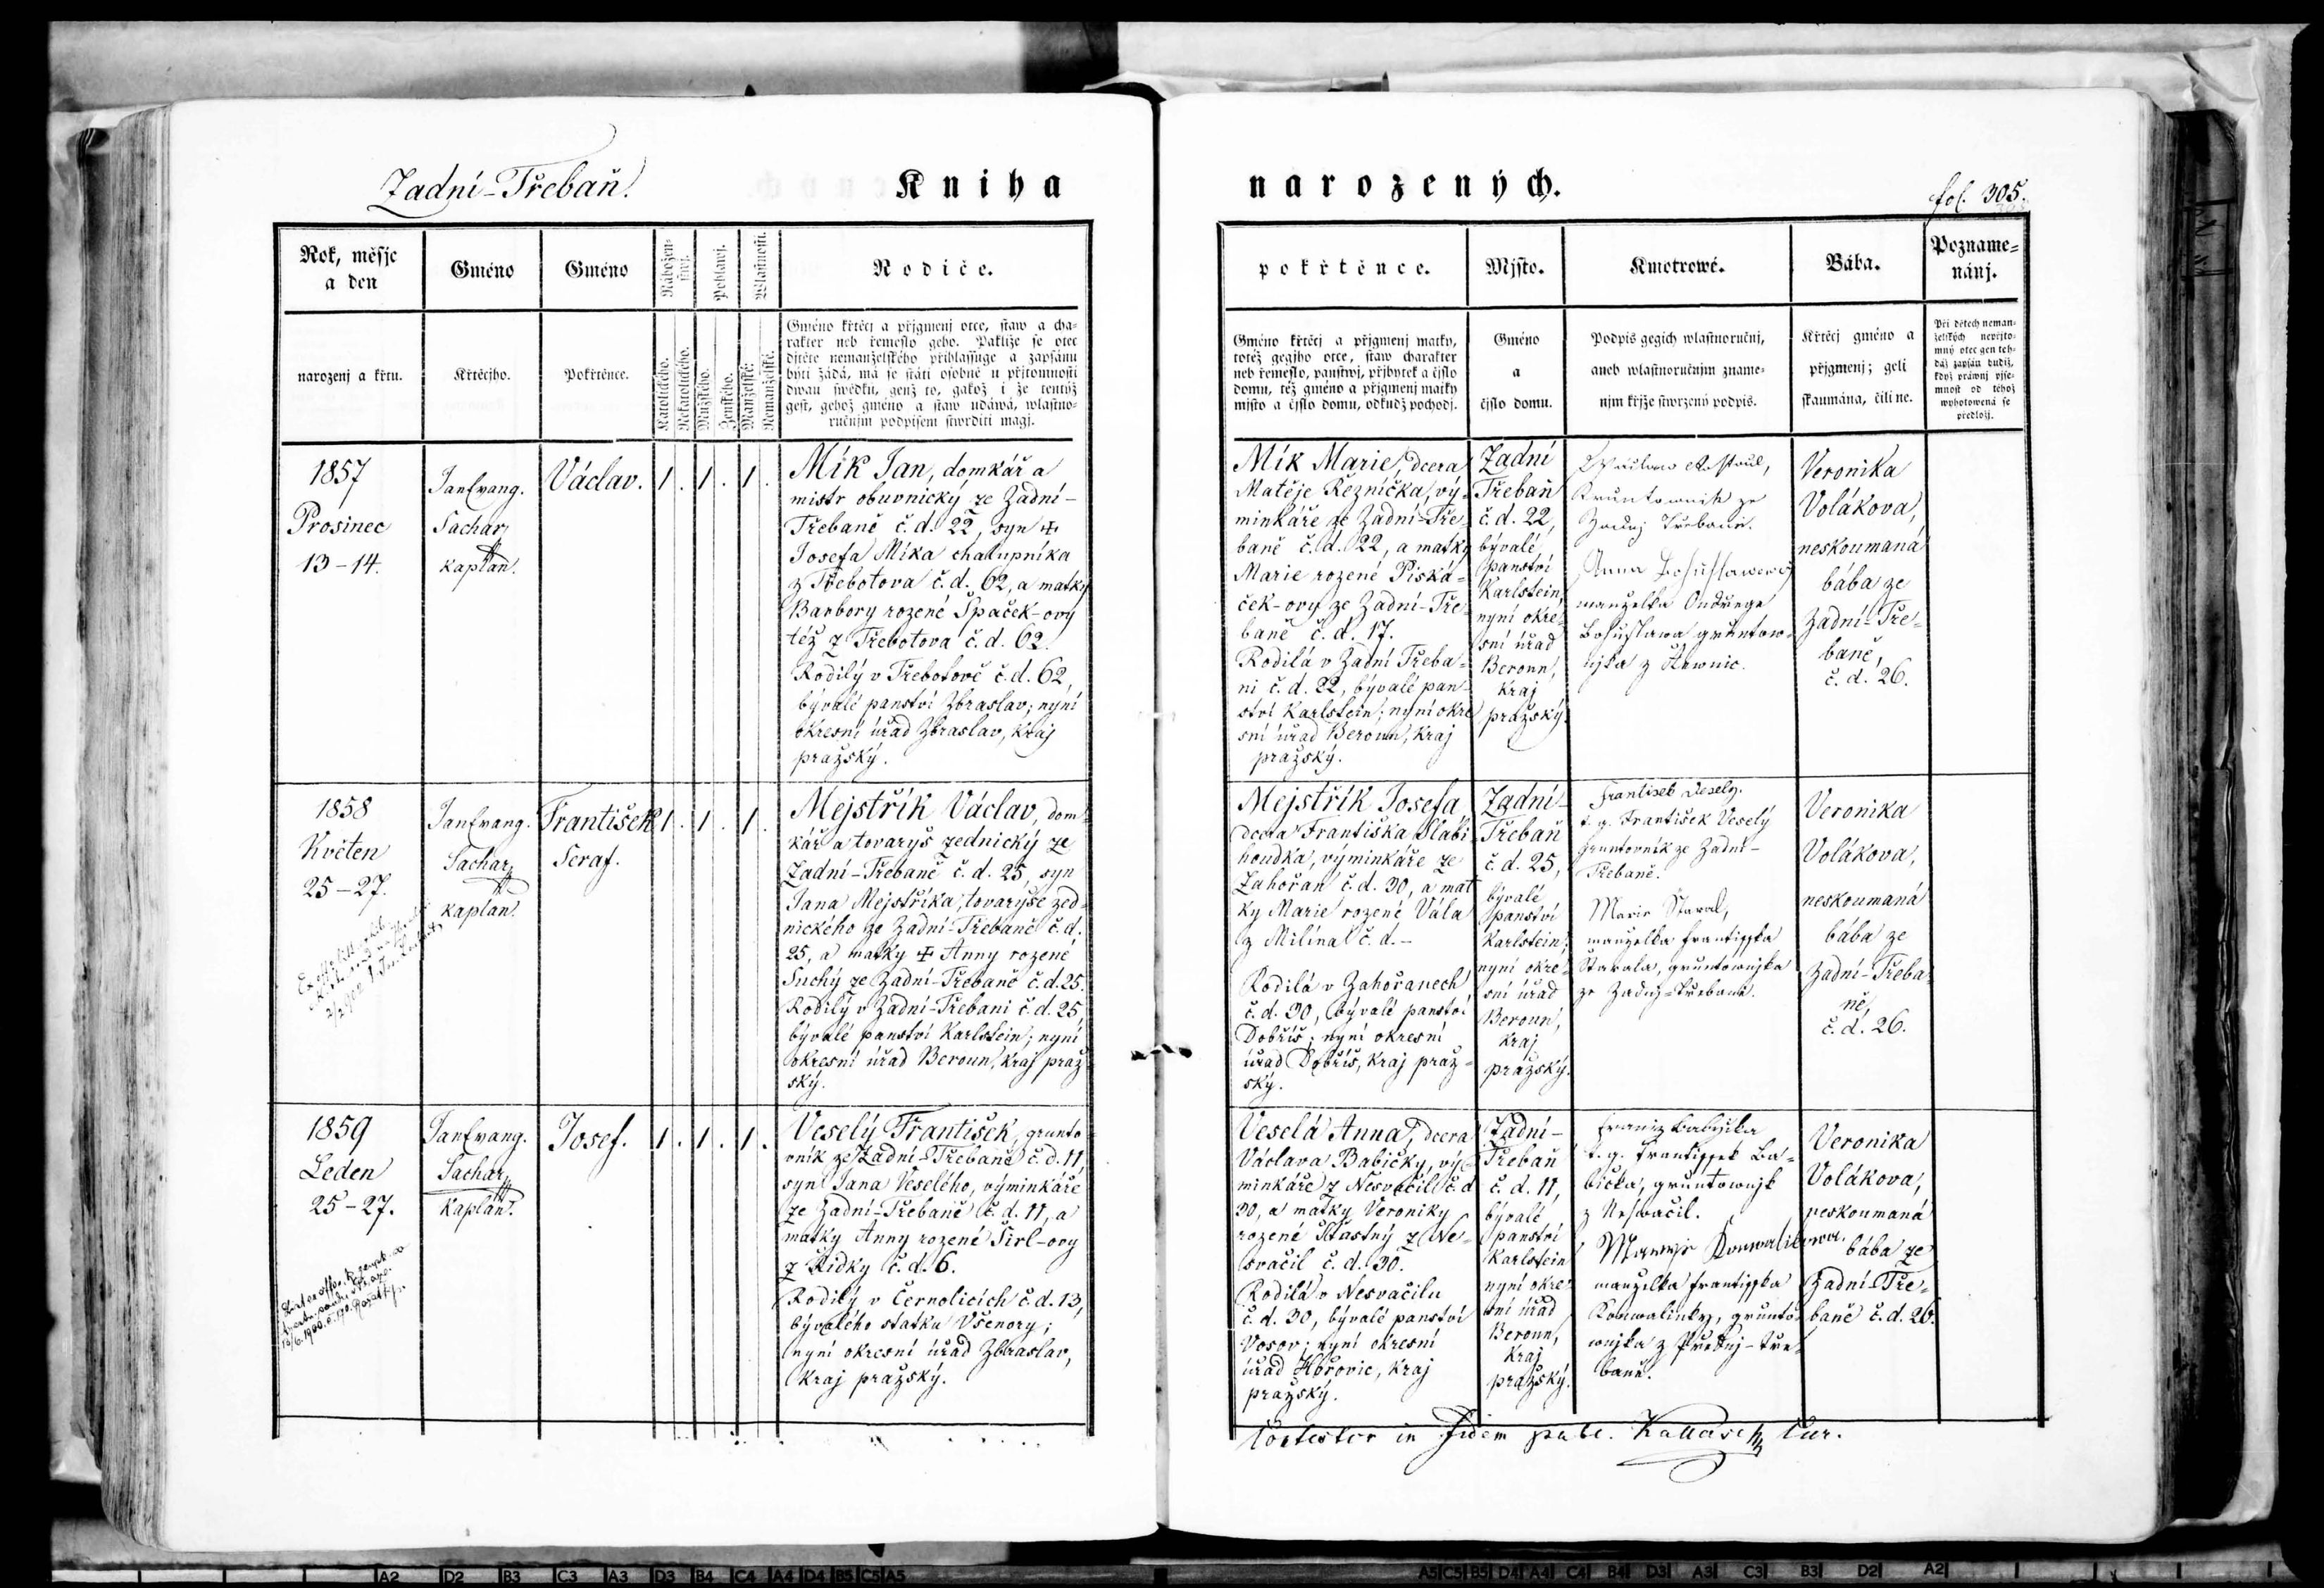 Zadní-Třebaň.
Kniha
narozených.
fol. 305.
Rok, měsjc
a den
Gméno
Gméno
Nábožen-
stwj.
Pohlawj.
Wlastnosti.
Rodiče.
narozenj a křtu.
Křtěcjho.
Pokřtěnce.
Katolického.
Nekatolického.
Mužského.
Ženského.
Manželské.
Nemanželské.
Gméno křtěcj a přjgmenj otce, staw a cha-
rakter neb řemeslo geho. Pakliže se otec
djtěte nemanželského přihlassuge a zapsánu
býti žádá, má se státi osobně u přjtomnosti
dwau swědků, genž to, gakož i že tentýž
gest, gehož gméno a staw udáwá, wlastno-
ručnjm podpisem stwrditi magj.
pokřtěnce.
Mjsto.
Kmotrowé.
Bába.
Pozname-
nánj.
Gméno křtěcj a přjgmenj matky,
totéž gegjho otce, staw charakter
neb řemeslo, panstwj, přjbytek a čjslo
domu, též gméno a přjgmenj matky
mjsto a čjslo domu, odkudž pocházj.
Gméno
a
čjslo domu.
Podpis gegich wlastnoručnj,
aneb wlastnoručnjm zname-
njm křjže stwrzený podpis.
Křtěcj gméno a
přjgmenj; geli
skaumána, čili ne.
Při dětech neman-
želských negisto-
mný otec gen teh-
dáž zapsán budiž,
když práwnj pjse-
mnost od téhož
wyhotowená se
předložj.
1857
Prosinec
13-14.
Jan Evang.
Sachar
kaplan.
Václav.
1. 1. 1.
Mík Jan, domkář a
mistr obuvnický ze Zadní-
Třebaně č. d. 22, syn ✠
Josefa Míka chalupníka
z Třebotova č. d. 62, a matky
Barbory rozené Špaček-ovy
též z Třebotova č. d. 62.
Rodilý v Třebotově č. d. 62,
bývalé panství Zbraslav; nyní
okresní úřad Zbraslav, kraj
pražský.
Mík Marie, dcera
Matěje Řezníčka, vý-
minkáře ze Zadní-Tře-
baně č. d. 22, a matky
Marie rozené Piská-
ček-ovy ze Zadní-Tře-
baně č. d. 17.
Rodilá v Zadní Třeba-
ni č. d. 22, bývalé pan-
ství Karlstein; nyní okre-
sní úřad Beroun, kraj
pražský.
Zadní
Třebaň
č. d. 22,
bývalé
panství
Karlstein,
nyní okre-
sní úřad
Beroun,
kraj
pražský.
gruntownik ze
Zadnj Třebaně.
Anna Bohuslawowa
manželka Ondřege
Bohuslawa gruntow-
njka z
Veronika
Volákova,
neskoumaná
bába ze
Zadní-Tře-
baně,
č. d. 26.
1858
Květen
25-27.
Jan Evang.
Sachar
kaplan.
František
Seraf.
1. 1. 1.
Mejstřík Václav, dom-
kář a tovaryš zednický ze
Zadní-Třebaně č. d. 25, syn
Jana Mejstříka, tovaryše zed-
nického ze Zadní-Třebaně č. d.
25, a matky ✠ Anny rozené
Suchý ze Zadní-Třebaně č. d. 25.
Rodilý v Zadní-Třebani č. d. 25,
bývalé panství Karlstein; nyní
okresní úřad Beroun, kraj praž-
ský.
Mejstřík Josefa
dcera Františka Slabi-
houdka, výminkáře ze
Zahořan č. d. 30, a mat-
ky Marie rozené Vála
z Milína č. d. -
Rodilá v Zahořanech
č. d. 30, bývalé panství
Dobříš; nyní okresní
úřad Dobříš, kraj praž-
ský.
Zadní-
Třebaň
č. d. 25,
bývalé
panství
Karlstein;
nyní okre-
sní úřad
Beroun,
kraj
pražský.
František Veselý.
t. g. František Veselý
gruntovník ze Zadní-
Třebaně.
Marie
manželka Frantisska
gruntownjka
ze Zadnj-Třebaně.
Veronika
Volákova,
neskoumaná
bába ze
Zadní-Třeba-
ně,
č. d. 26.
1859
Leden
25-27.
Jan Evang.
Sachar
kaplan.
Josef.
1. 1. 1.
Veselý František, grunto-
vník ze Zadní-Třebaně č. d. 11,
syn Jana Veselého, výminkáře
ze Zadní-Třebaně č. d. 11, a
matky Anny rozené Širl-ovy
z Řidky č. d. 6.
Rodilý v Černolicích č. d. 13,
bývalého statku Všenory;
nyní okresní úřad Zbraslav,
kraj pražský.
Veselá Anna, dcera
Václava Babičky, vý-
minkáře z Nesvačil č. d.
30, a matky Veroniky
rozené Šťastný z Ne-
svačil č. d. 30.
Rodilá v Nesvačilu
č. d. 30, bývalé panství
Vosov; nyní okresní
úřad Hořovic, kraj
pražský.
Zadní-
Třebaň
č. d. 11,
bývalé
panství
Karlstein
nyní okre-
sní úřad
Beroun,
kraj
pražský.
Franz Babička
t. g. Frantissek Ba-
bička, gruntownjk
z Neswačil.
manželka Frantisska
Konwalinky, grunto-
wnjka z Přednj-Tře-
baně.
Veronika
Volákova,
neskoumaná
bába ze
Zadní-Tře-
baně č. d. 26.
in fidem